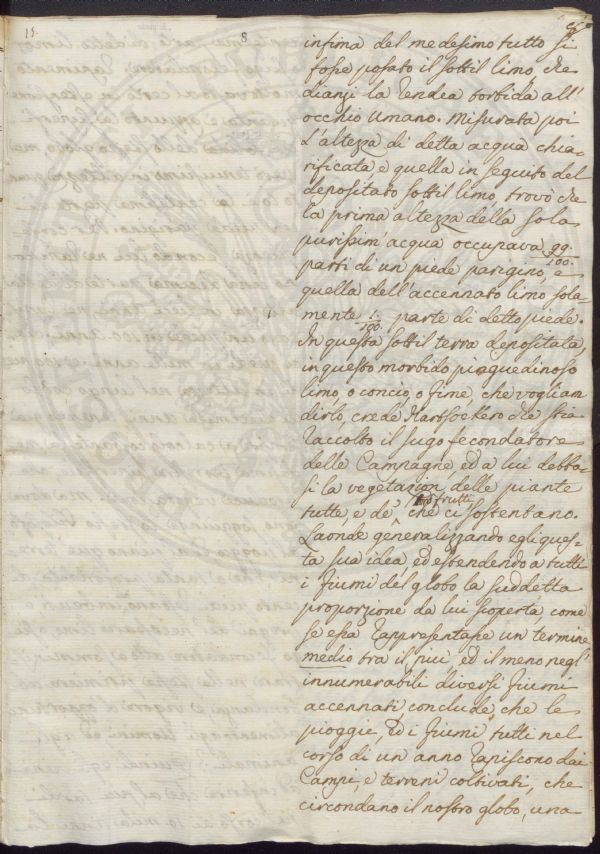 15.
8
infima del medesimo tutto si
fosse posato il sottil limo, che
dianzi la rendea torbida all'
occhio umano. Misurata poi
l'altezza di detta acqua chia-
rificata, e quella in seguito del
depositato sottil limo, trovò che
la prima altezza della sola
purissim'acqua occupava 99/100.
parti di un piede parigino, e
quella dell'accennato limo sola-
mente 1/100. parte di detto piede.
In questa sottil terra depositata,
in questo morbido pinguedinoso
limo, o concio, o fime, che vogliam
dirlo, crede Hartsoekero che stia
raccolto il sugo fecondatore
delle Campagne, ed a lui debba-
si la vegetazion delle piante
tutte, e de' frutti che ci sostentano.
Laonde generalizzando egli ques-
ta sua idea, ed estendendo a tutti
i fiumi del globo la suddetta
proporzione da lui scoperta come
se essa rappresentasse un termine
medio tra il più, ed il meno negl'
innumerabili diversi fiumi
accennati conclude, che le
pioggie, ed i fiumi tutti nel
corso di un anno rapiscono dai
Campi, e terreni coltivati, che
circondano il nostro globo, una